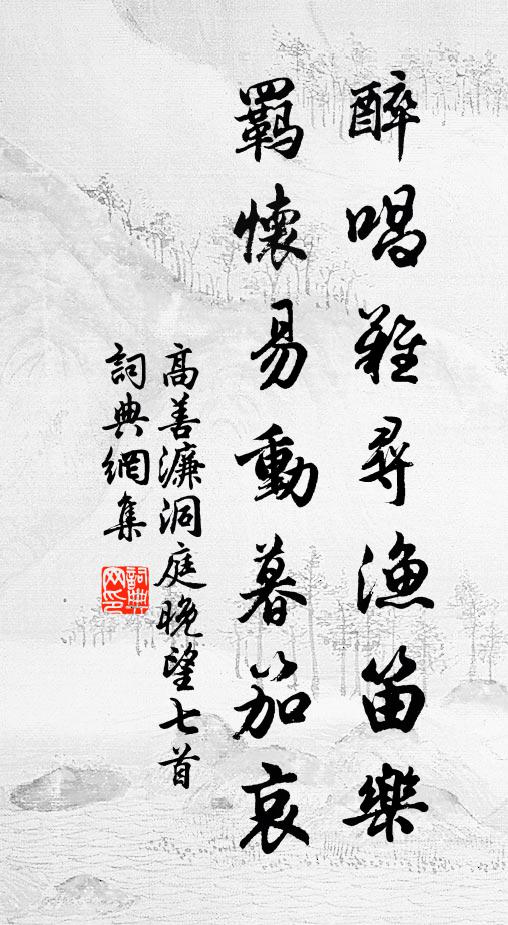 醉唱難尋漁笛樂
羈懷易動暮笳哀
高善濂洞庭晚望七首
詞典網集
詞典
网印